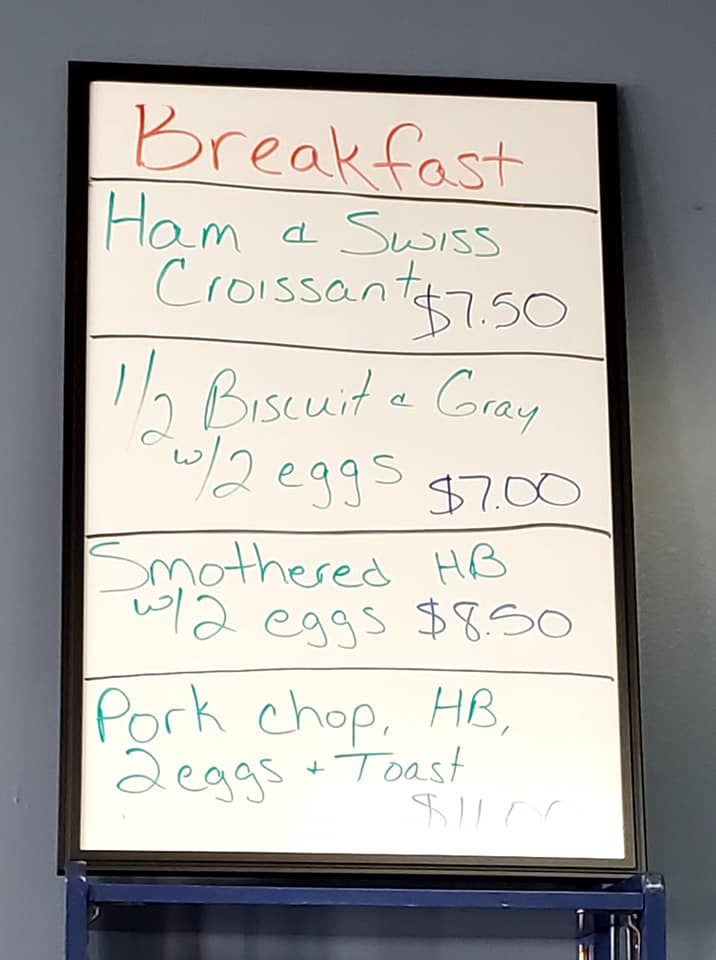 Breakfast
Ham & Swiss
Croissant $7.50
1/2 Biscuit & Gray
w/2 eggs $7.00
Smothered HB
w/2 eggs $8.50
Pork chop, HB,
2 eggs + Toast
$11.00